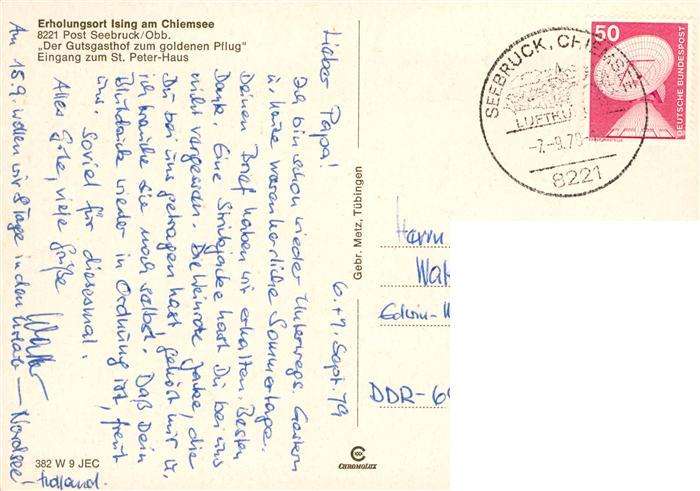 Erholungsort Ising am Chiemsee
8221 Post Seebruck/Obb.
„Der Gutsgasthof zum goldenen Pflug“
Eingang zum St. Peter-Haus
6.+7. Sept. 79
Lieber Papa!
Ich bin schon wieder unterwegs. Gestern
u. heute waren herrliche Sommertage.
Deinen Brief haben wir erhalten. Besten
Dank. Eine Strickjacke hast Du bei uns
nicht vergessen. Die weinrote Jacke, die
Du bei uns getragen hast gehört mir u.
ich brauche sie noch selbst. Daß Dein
Blutdruck wieder in Ordnung ist, freut
uns. Soviel für diesesmal.
Alles Gute, viele Grüße
Am 15.9. wollen wir Tage in den Urlaub — Nordsee!
Holland.
Gebr. Metz, Tübingen
382 W 9 JEC
CHROMOLUX
SEEBRUCK, CHIEMSEE
LUFTKUR
-7.-9.79
8221
50
DEUTSCHE BUNDESPOST
Herrn
Wal
Edwin-
DDR-69